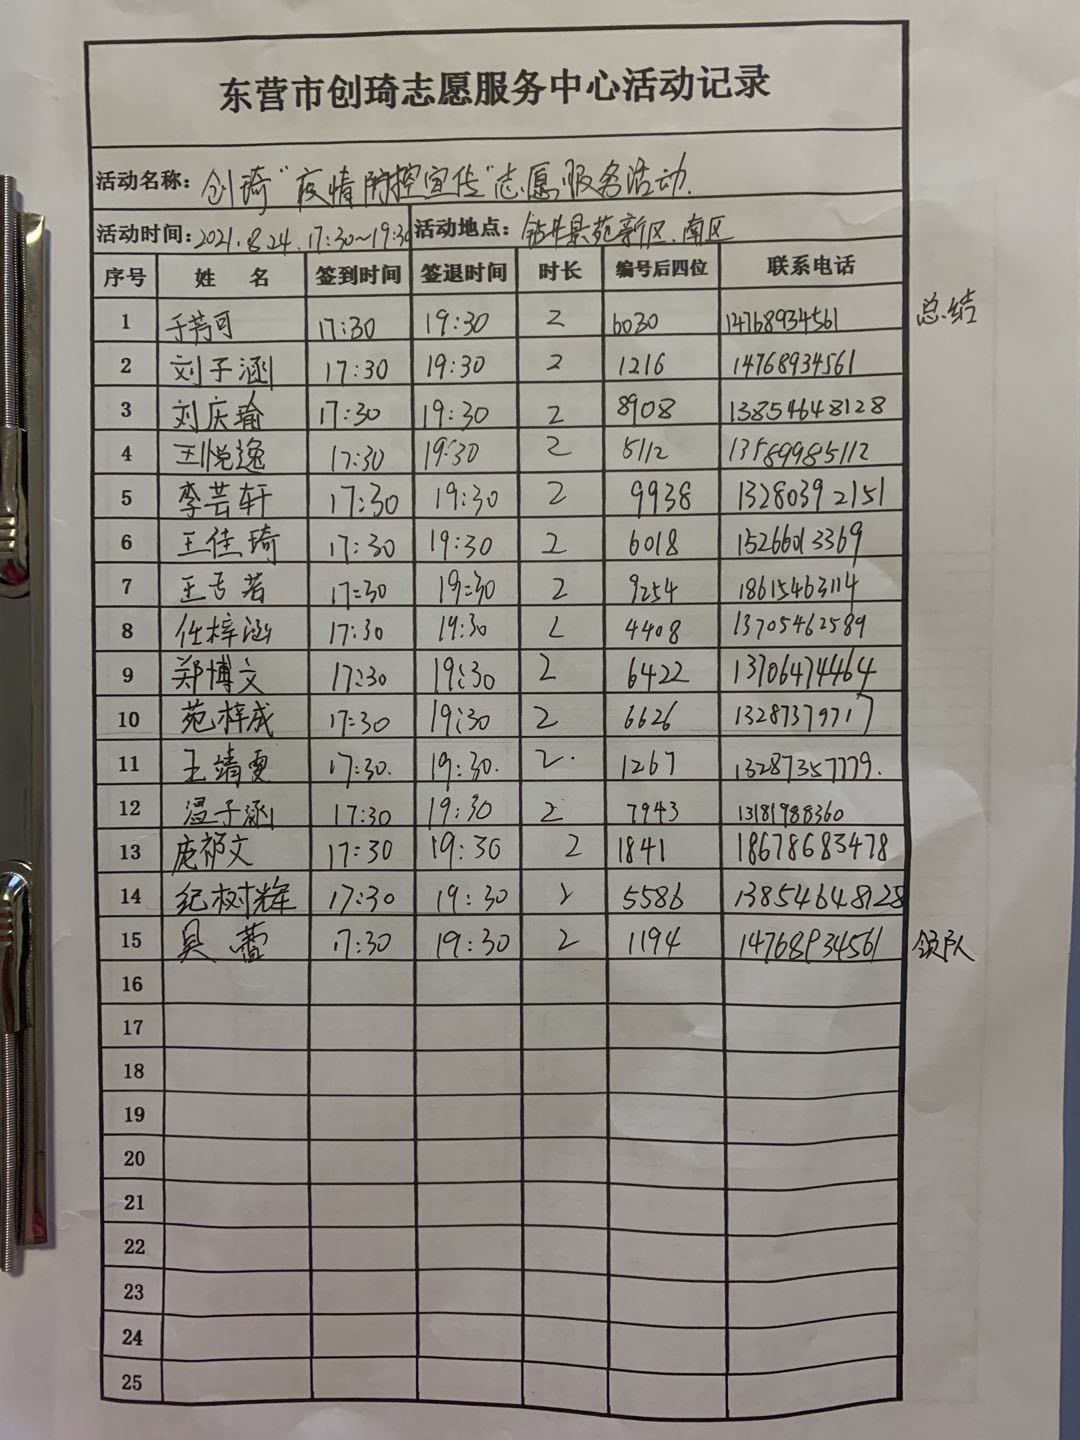 东营市创琦志愿服务中心活动记录
活动名称: 创琦"疫情防控宣传"志愿服务活动.
活动时间: 2021.8.24. 17:30~19:30 活动地点: 钻井景苑新区.南区
序号 姓 名 签到时间 签退时间 时长 编号后四位 联系电话
1 于芮可 17:30 19:30 2 6030 14768934561 总结
2 刘子涵 17:30 19:30 2 1216 14768934561
3 刘庆瑜 17:30 19:30 2 8908 13854648128
4 王悦逸 17:30 19:30 2 5112 13589985112
5 李芸轩 17:30 19:30 2 9938 13280392151
6 王佳琦 17:30 19:30 2 6018 15266013369
7 王 若 17:30 19:30 2 9254 18615463114
8 任梓涵 17:30 19:30 2 4408 13705462589
9 郑博文 17:30 19:30 2 6422 13706474464
10 苑梓成 17:30 19:30 2 6626 13287379717
11 王靖雯 17:30. 19:30. 2. 1267 13287357779.
12 温子涵 17:30 19:30 2 7943 13181988360
13 庞祁文 17:30 19:30 2 1841 18678683478
14 纪树辉 17:30 19:30 2 5586 13854648128
15 吴蕾 17:30 19:30 2 1194 14768934561 领队
16
17
18
19
20
21
22
23
24
25